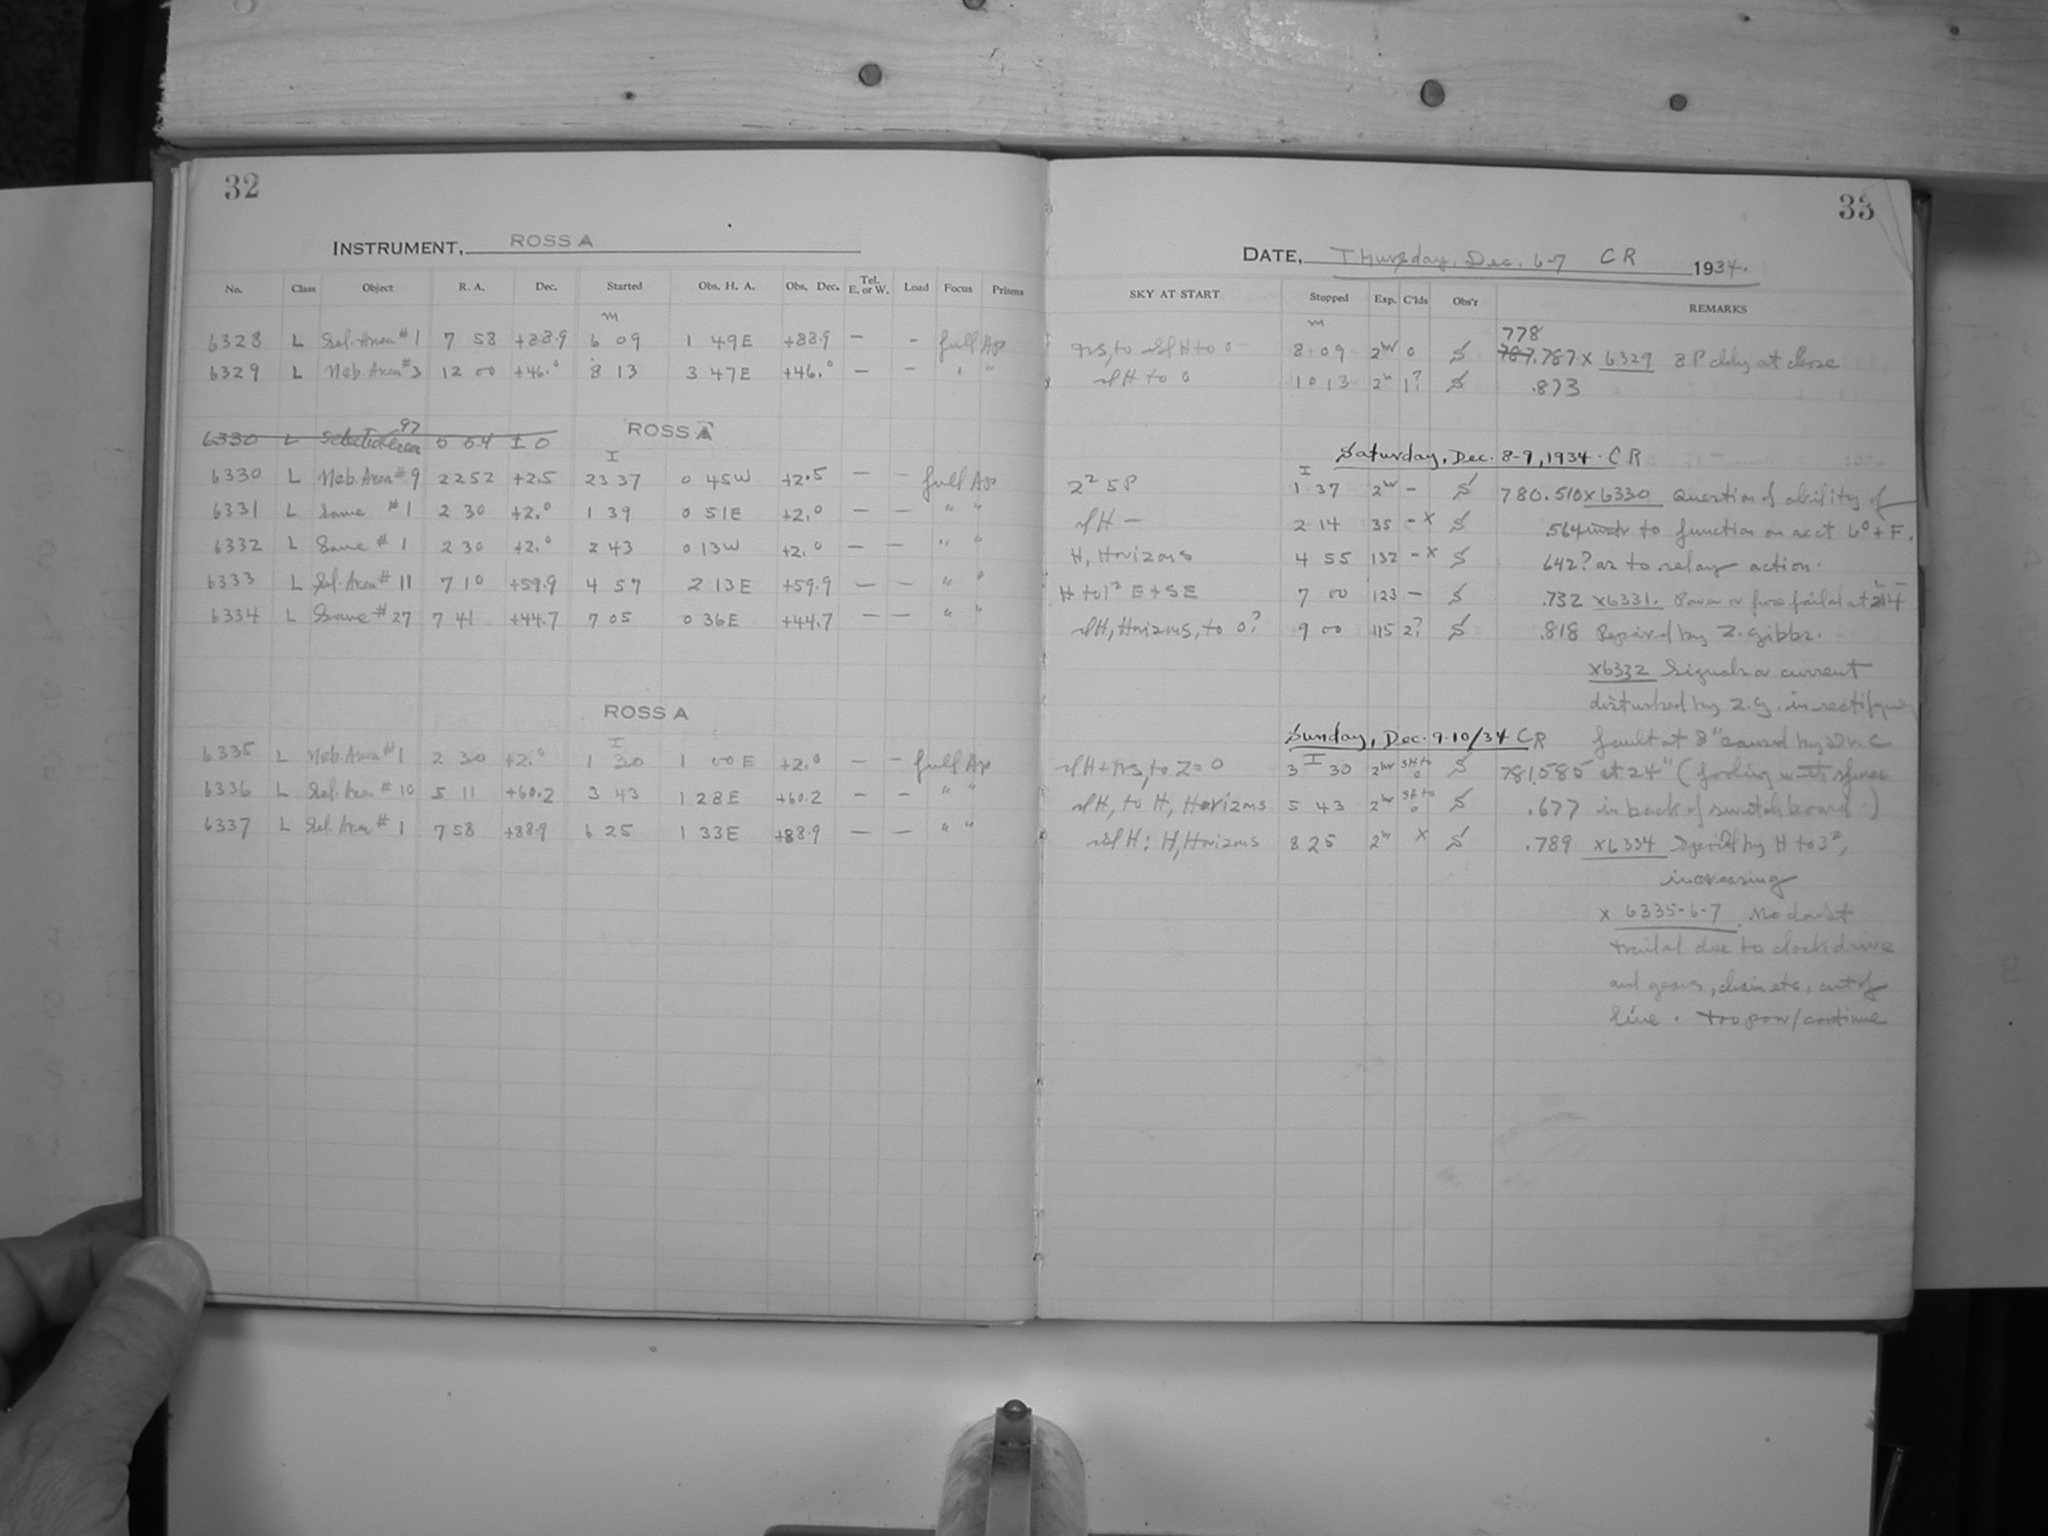 32
INSTRUMENT, ROSS A
No. Class Object R. A. Dec. Started Obs. H. A. Obs. Dec. Tel. E. or W. Load Focus Prisms
m
6328 L Sel. Area #1 7 58 +88.9 6 09 1 49E +88.9 — - full Ap
6329 L Neb. Area #3 12 00 +46.0 8 13 3 47E +46.0 — — " "
6330 L Selected Area 97 5 54 ± 0 ROSS A
I
6330 L Neb. Area #9 22 52 +2.5 23 37 0 45W +2.5 — — full Ap
6331 L Same #1 2 30 +2.0 1 39 0 51E +2.0 — — " "
6332 L Same #1 2 30 +2.0 2 43 0 13W +2.0 — — " "
6333 L Sel. Area #11 7 10 +59.9 4 57 2 13E +59.9 — — " "
6334 L Same #27 7 41 +44.7 7 05 0 36E +44.7 — — " "
ROSS A
I
6335 L Neb. Area #1 2 30 +2.0 1 30 1 00E +2.0 — — full Ap
6336 L Sel. Area #10 5 11 +60.2 3 43 1 28E +60.2 — — " "
6337 L Sel. Area #1 7 58 +88.9 6 25 1 33E +88.9 — — " "
33
DATE, Thursday, Dec. 6-7 CR 1934.
SKY AT START Stopped Exp. C'lds Obs'r REMARKS
m 778
to H to 0 8 09 2hr 0 S 787.787 x 6329 8P cldy at close
H to 0 10 13 2h 1? S .873
Saturday, Dec. 8-9, 1934. CR
I
2² 5P 1 37 2hr - S 780.510 x 6330 Question of ability of
H — 2 14 35 - x S .564 to function on acct 6° + F.
H, Horizons 4 55 132 - x S 642? as to relay action.
H to 1² E + SE 7 00 123 — S .732 x6331. Power or fuse failed at 214
H, Horizons, to 0? 9 00 115 2? S .818 Repaired by Z. Gibbs.
x6332 Signals or current
disturbed by Z.G. in rectifying
Sunday, Dec. 9-10/34 CR fault at 8" caused by
I
H + to Z=0 3 30 2hr to 0 S 781.585 at 24" (fooling with
H, to H, Horizons 5 43 2hr to 0 S .677 in back of switchboard.)
H; H, Horizons 8 25 2h x S .789 x6334 Spoiled by H to 3²,
increasing
x 6335-6-7. No doubt
trailed due to clock drive
and gears, chain etc, out of
line. Too poor/continue